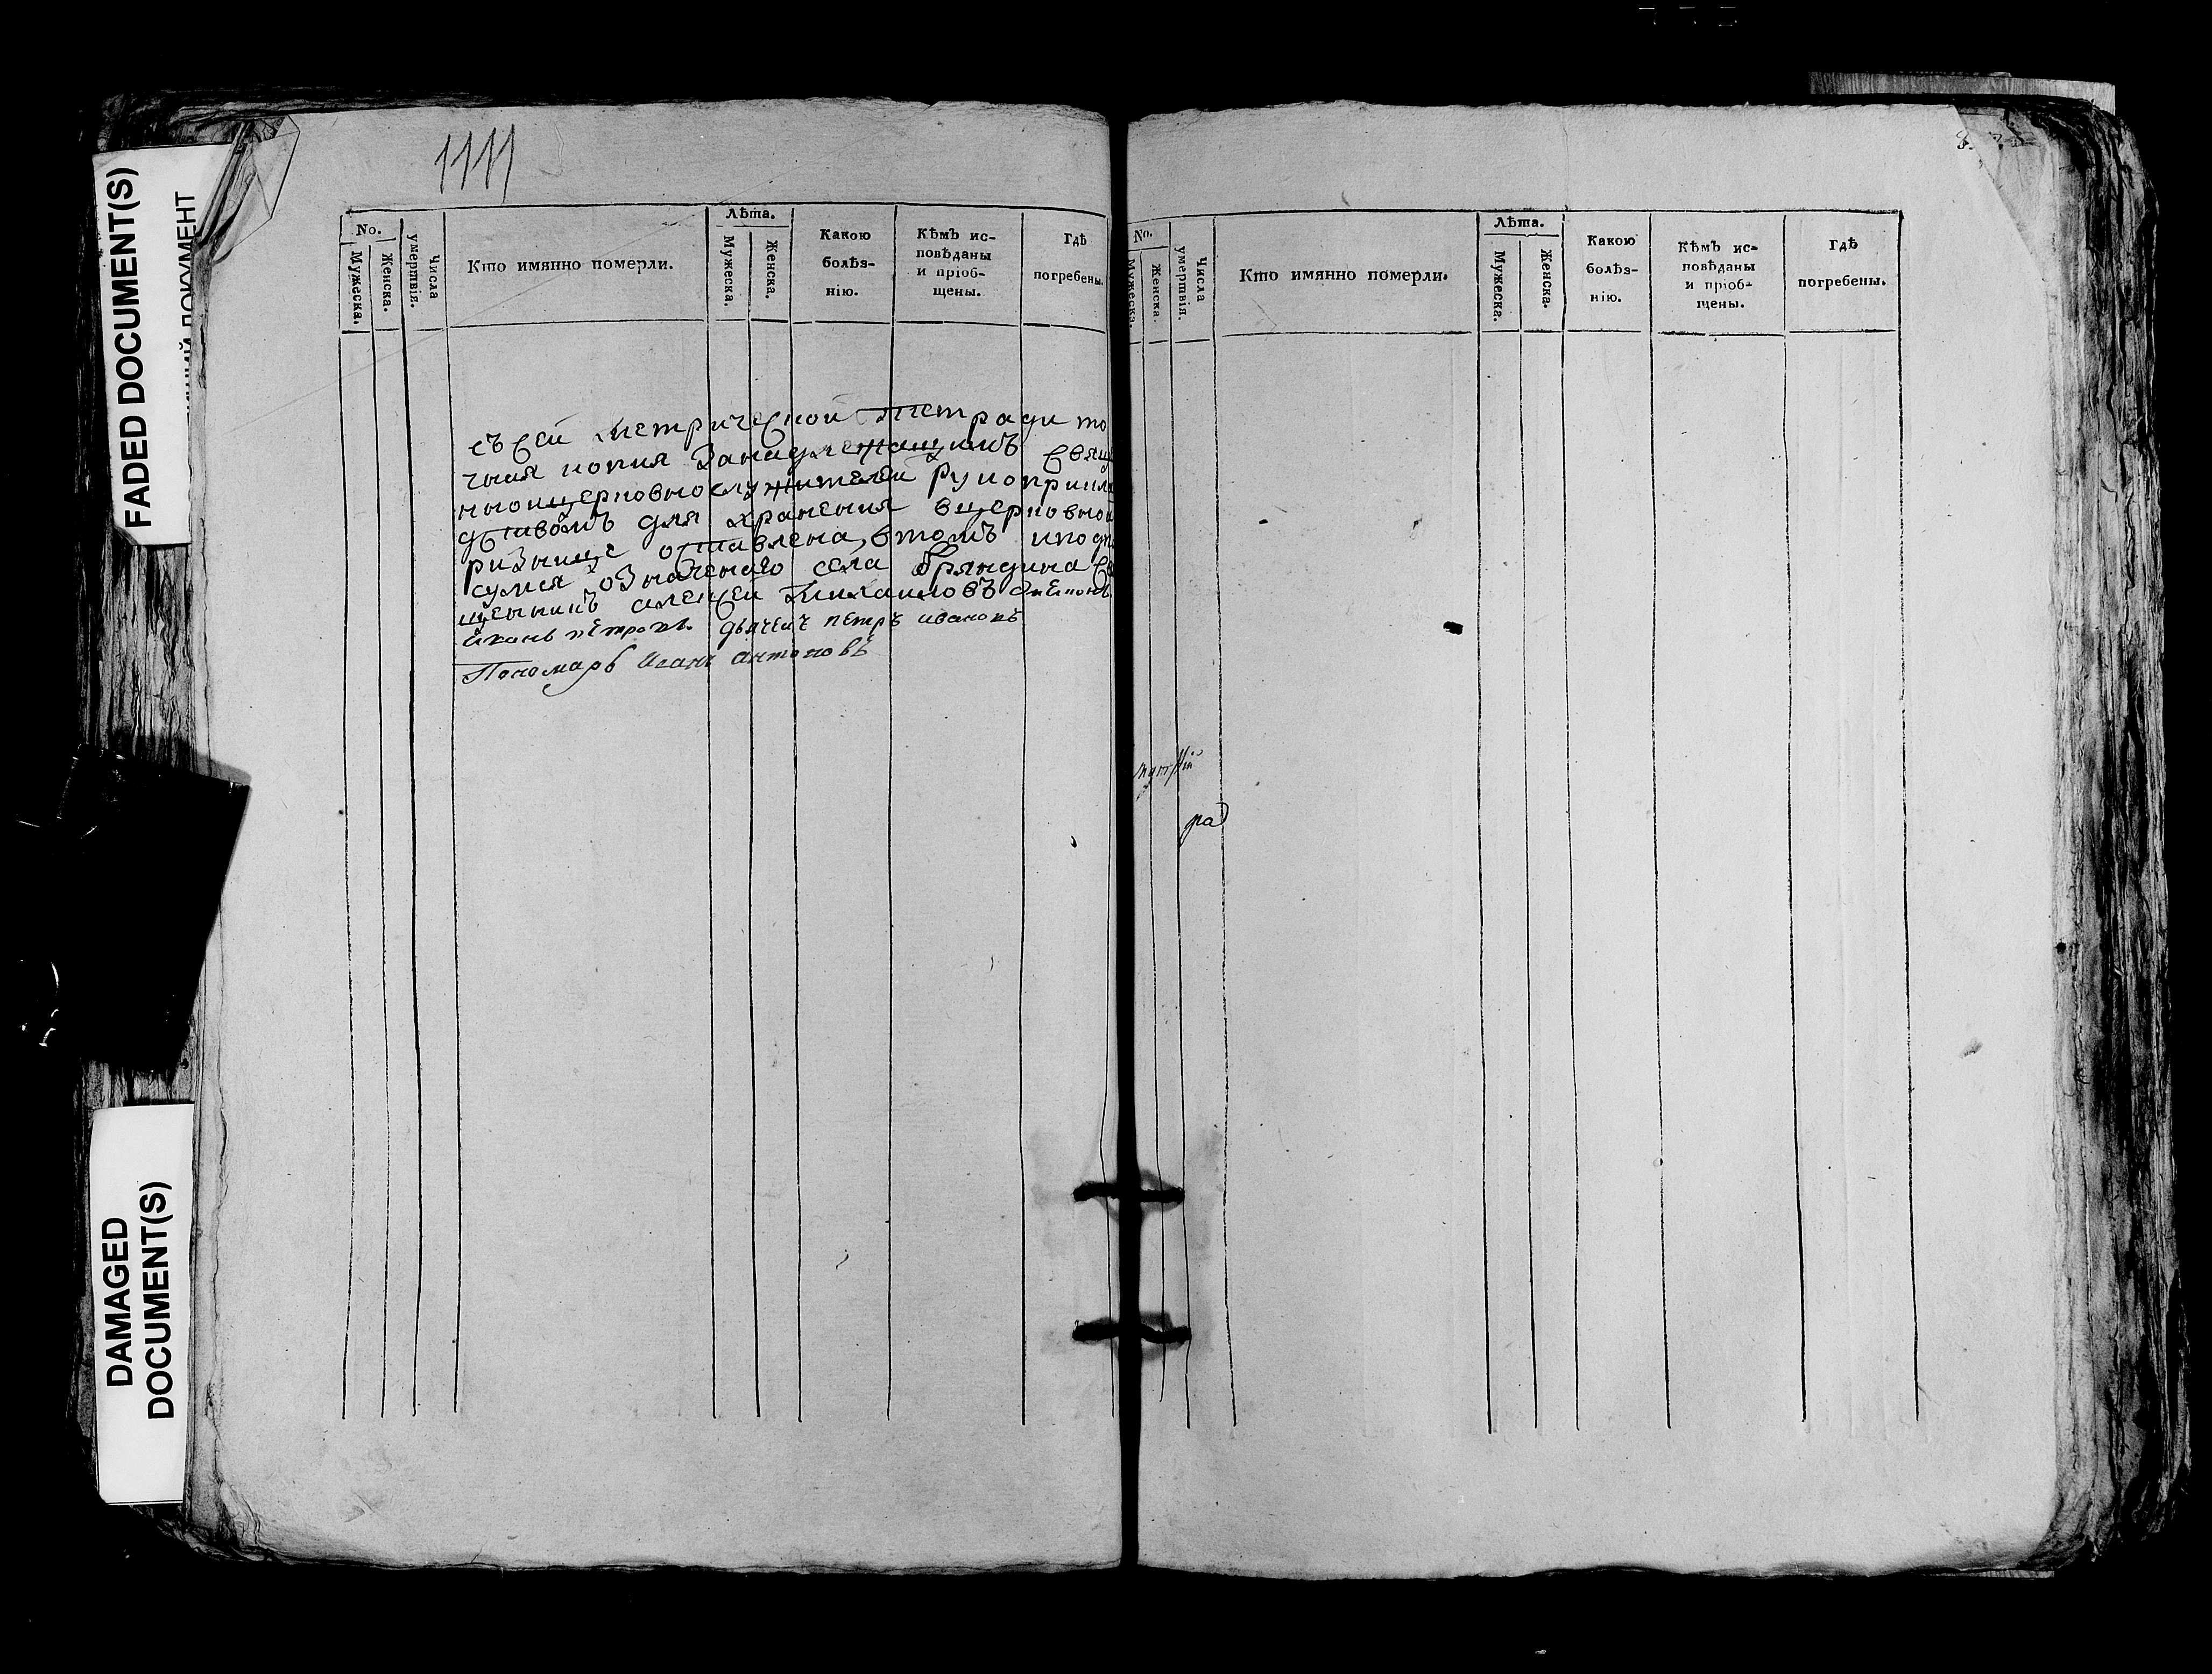 FADED DOCUMENT(S)
DAMAGED
DOCUMENT(S)
1111
No.
Мужеска.
Женска.
Числа
умертвія.
Кто имянно померли.
Лѣта.
Мужеска.
Женска.
Какою
болѣз-
нію.
Кѣмъ ис-
повѣданы
и пріоб-
щены.
Гдѣ
погребены.
съ сей метрической тетради то
чная копия Занадлежащимъ свящ
нноицерковнослужителей рукоприкла
дствомъ для хранения вцерковной
ризнице оставлена, втомъ иподпи
суемся означеного села Бряндина св
щенникъ алексей Михаиловъ
иванъ петровъ. дьячекъ петръ ивановъ
Пономарь Иванъ антоновъ
No.
Мужеска.
Женска.
Числа
умертвія.
Кто имянно померли.
Лѣта.
Мужеска.
Женска.
Какою
болѣз-
нію.
Кѣмъ ис-
повѣданы
и пріоб-
щены.
Гдѣ
погребены.
ра